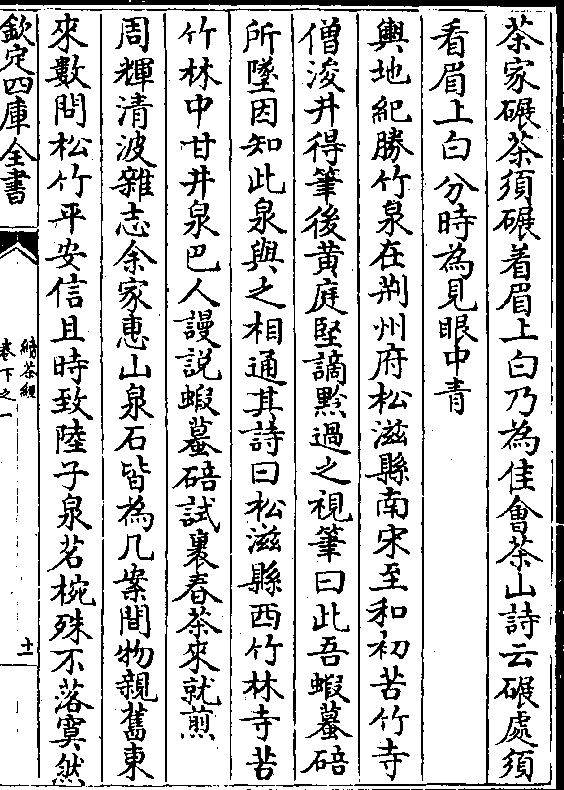 茶家碾茶須碾着眉上白乃為佳曾茶山詩云碾處須
看眉上白分時為見眼中青
輿地紀勝竹泉在荆州府松滋縣南宋至和初苦竹寺
僧浚井得筆後黄庭堅謫黔過之視筆曰此吾蝦蟇碚
所墜因知此泉與之相通其詩曰松滋縣西竹林寺苦
竹林中甘井泉巴人謾説蝦蟇碚試裹春茶來就煎
周輝清波雜志余家惠山泉石皆為几案間物親舊東
來數問松竹平安信且時致陸子泉茗椀殊不落寞然
欽定四庫全書
續茶經
卷下之一
十一